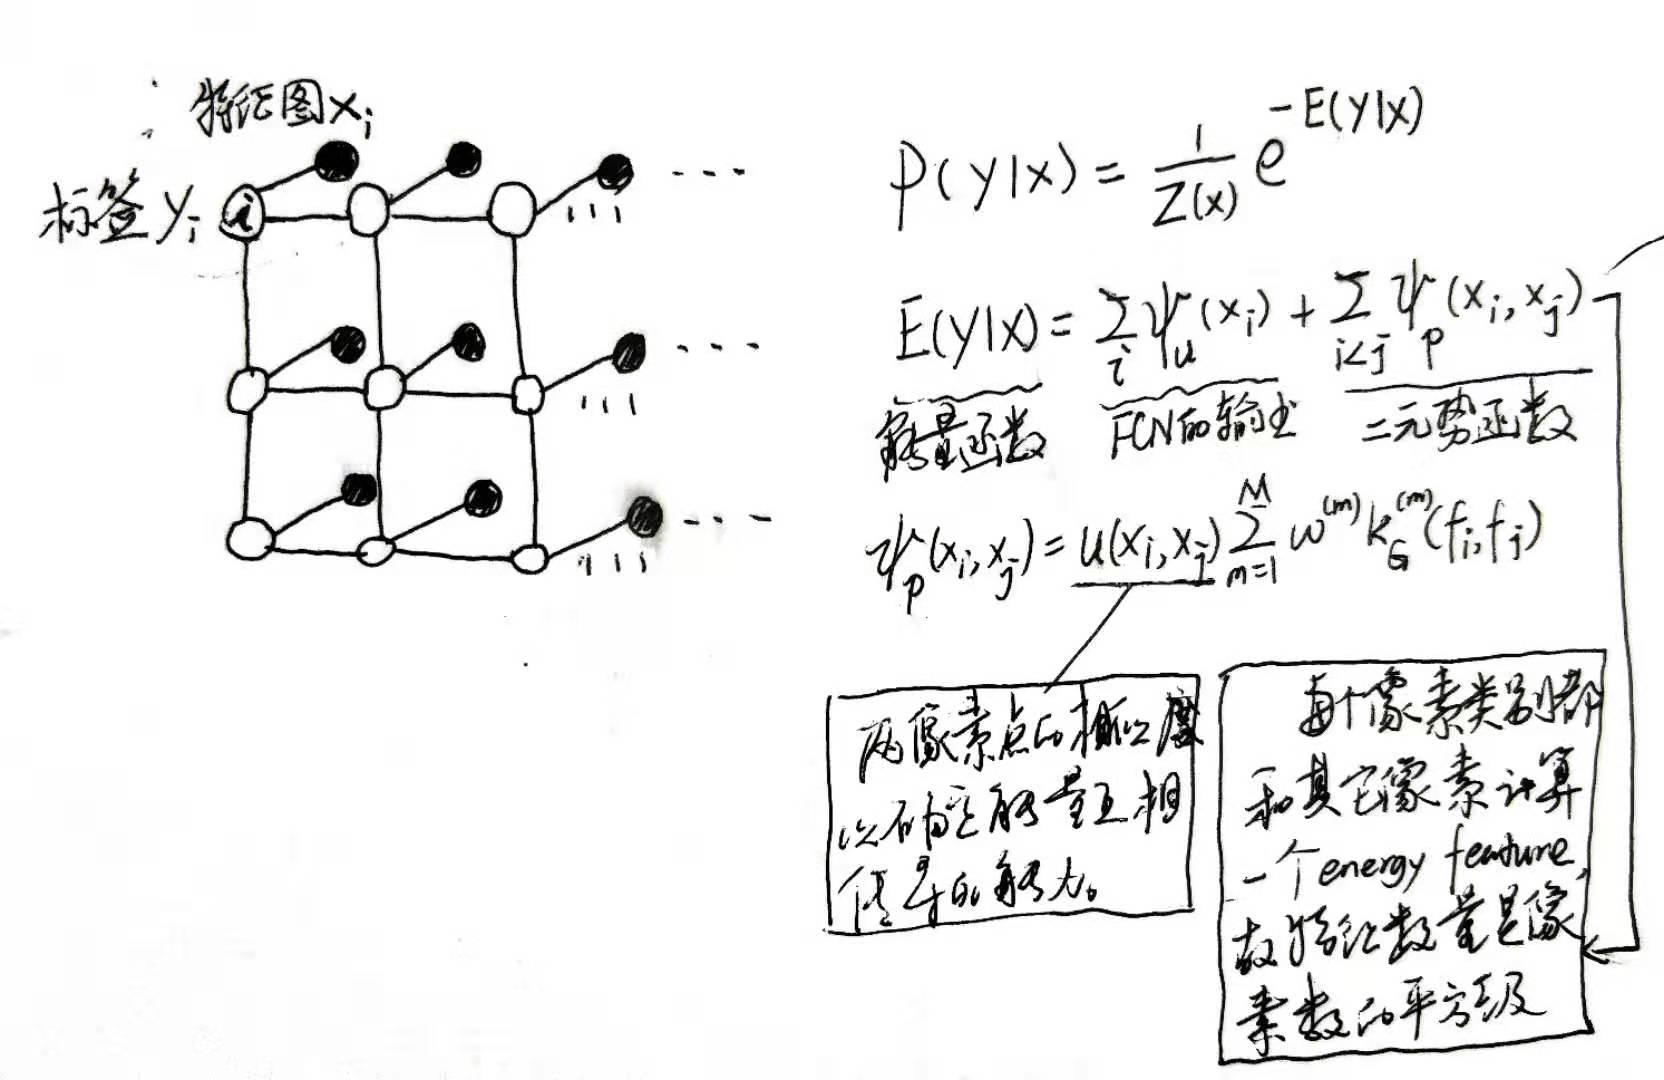 特征图 xᵢ
标签 yᵢ
i
P(y|x) = 1/Z(x) e^{-E(y|x)}
E(y|x) = Σ_i ψ_u(x_i) + Σ_{i<j} ψ_p(x_i, x_j)
能量函数 FCN的输出 二元势函数
ψ_p(x_i, x_j) = u(x_i, x_j) Σ_{m=1}^{M} ω^{(m)} k_G^{(m)}(f_i, f_j)
两像素点的相似度
以确定能量互相
传导的能力。
每个像素类别都
和其它像素计算
一个energy feature,
故特征数量是像
素数的平方级